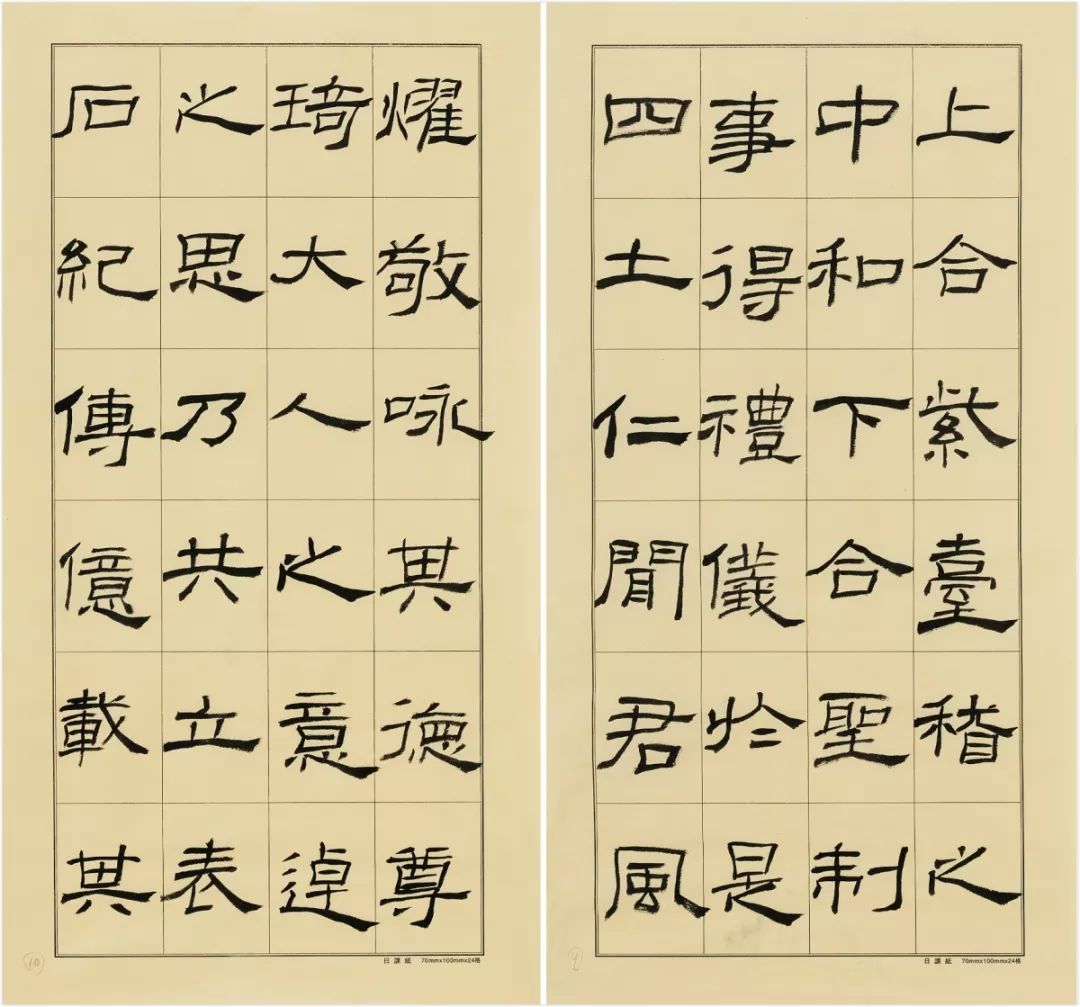 上合紫臺稽之
中和下合聖制
事得禮儀於是
四土仁聞君風
9
日課紙 70mmx100mmx24格
燿敬咏其德尊
琦大人之意逴
之思乃共立表
石紀傳億載其
10
日課紙 70mmx100mmx24格